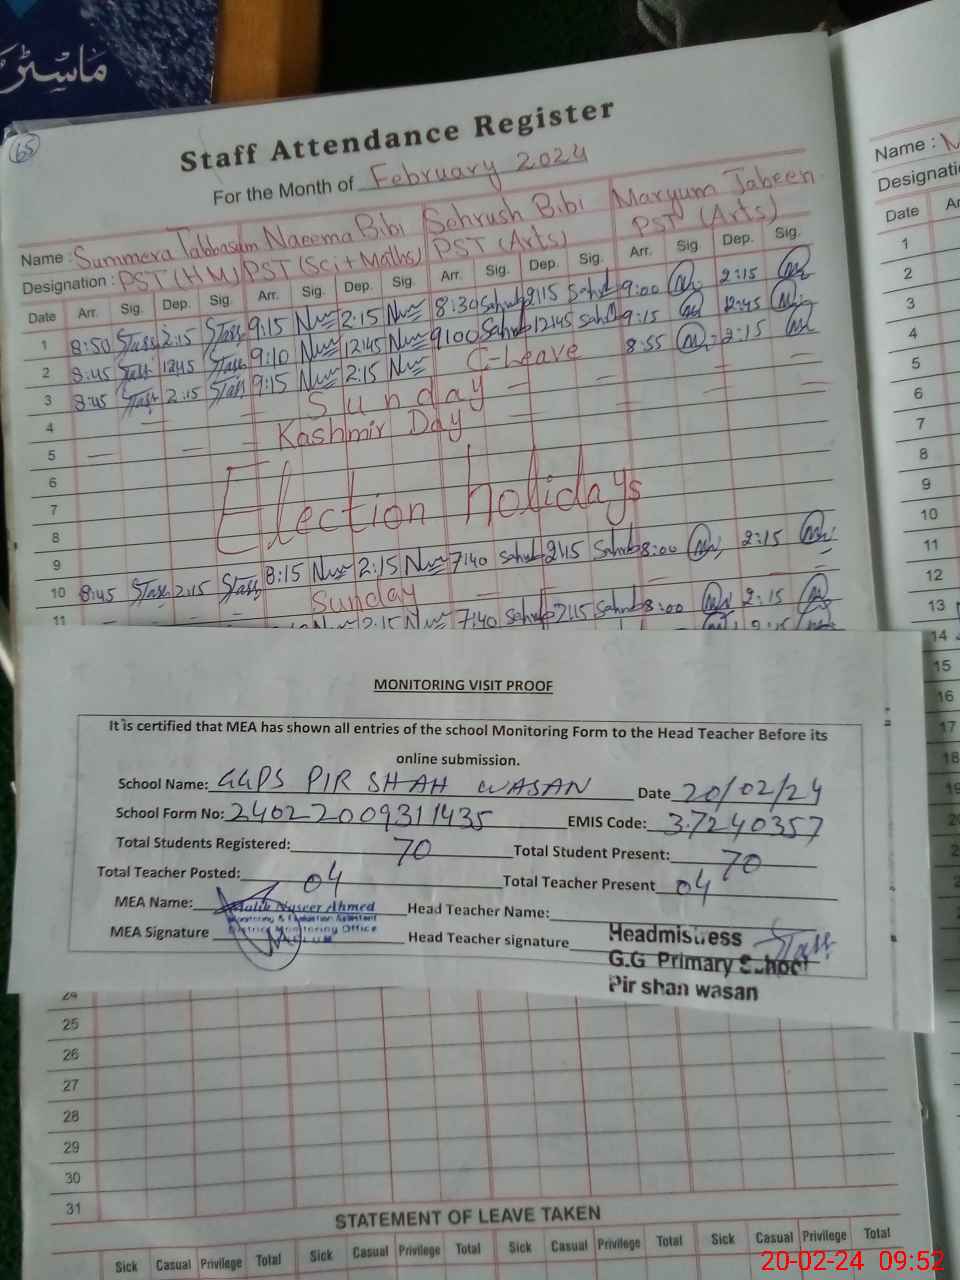 ماسٹر
65
Staff Attendance Register
For the Month of February 2024
Name : Summera Tabbasum Naeema Bibi Sehrush Bibi Maryum Jabeen
Designation : PST (HM) PST (Sci + Maths) PST (Arts) PST (Arts)
Date Arr. Sig. Dep. Sig. Arr. Sig. Dep. Sig. Arr. Sig. Dep. Sig. Arr. Sig. Dep. Sig.
1 8:50 2:15 9:15 2:15 8:30 2:15 9:00 2:15
2 8:45 12:45 9:10 12:45 9:00 12:45 9:15 12:45
3 8:45 2:15 9:15 2:15 C-Leave 8:55 2:15
4 Sunday
5 Kashmir Day
6
7 Election holidays
8
9
10 8:45 2:15 8:15 2:15 7:40 2:15 8:00 2:15
11 Sunday
2:15 7:40 2:15 8:00 2:15
MONITORING VISIT PROOF
It is certified that MEA has shown all entries of the school Monitoring Form to the Head Teacher Before its
online submission.
School Name: GGPS PIR SHAH WASAN Date 20/02/24
School Form No: 24022009311435 EMIS Code: 37240357
Total Students Registered: 70 Total Student Present: 70
Total Teacher Posted: 04 Total Teacher Present 04
MEA Name: Malik Nyseer Ahmed Head Teacher Name:
Monitoring & Evaluation Assistant
District Monitoring Office
MEA Signature Head Teacher signature
Headmistress
G.G Primary School
Pir shan wasan
24
25
26
27
28
29
30
31
STATEMENT OF LEAVE TAKEN
Sick Casual Privilege Total Sick Casual Privilege Total Sick Casual Privilege Total Sick Casual Privilege Total
Name : M
Date
1
2
3
4
5
6
7
8
9
10
11
12
13
14
15
16
17
18
20-02-24 09:52